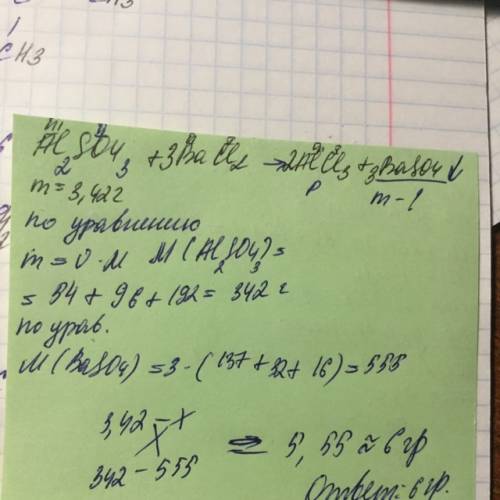 CH3
CH3
Al2(SO4)3 + 3BaCl2 → 2AlCl3 + 3BaSO4 ↓
m = 3,42г
р
m - ?
по уравнению
m = ν · M M(Al2SO4)3 =
= 54 + 96 + 192 = 342 г
по урав.
M(BaSO4) = 3 · (137 + 32 + 16) = 555
3,42 – x
342 – 555
= 5,55 ≈ 6 гр
Ответ: 6 гр.